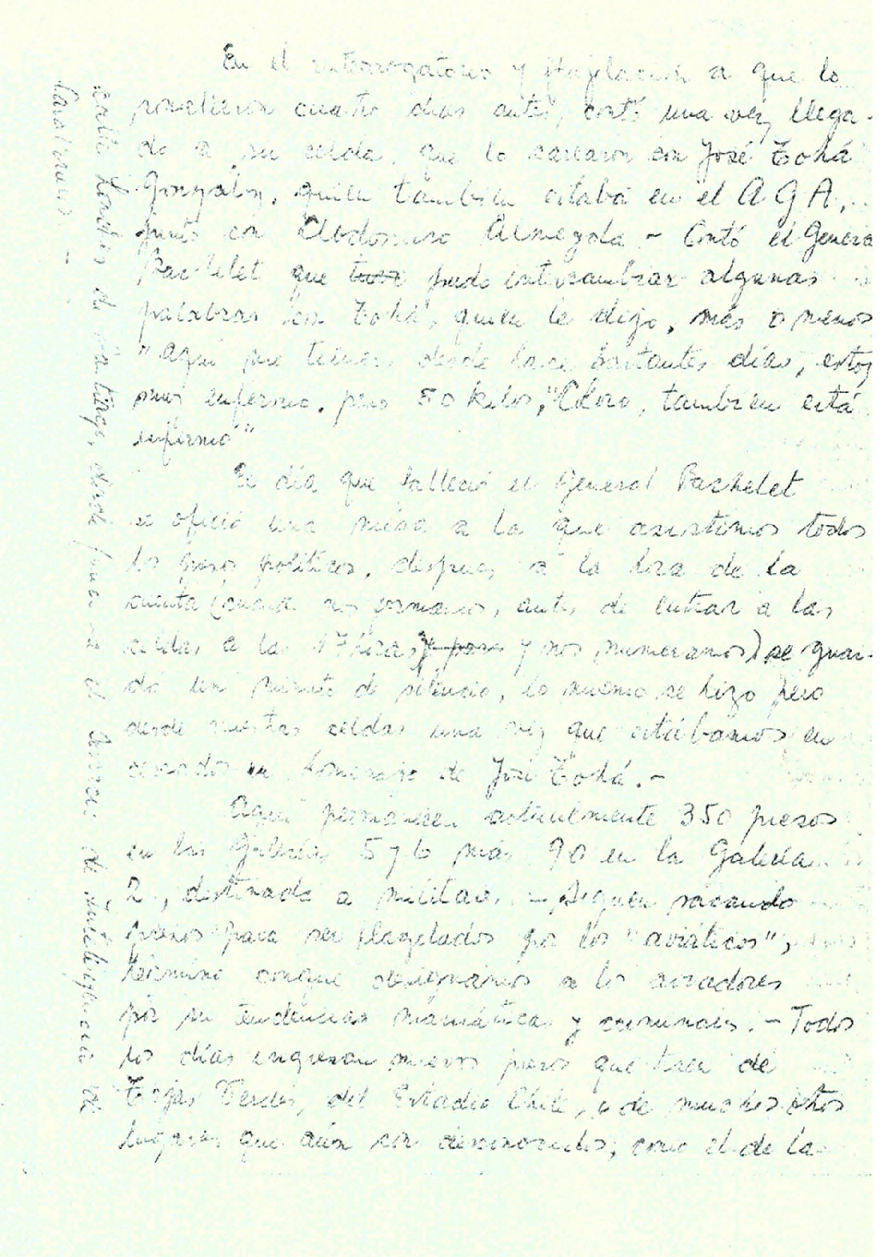 En el interrogatorio y flagelación a que lo
sometieron cuatro días antes, contó una vez llega-
do a su celda, que lo carearon con José Tohá
González, quien también estaba en el AGA,
junto con Clodomiro Almeyda.- Contó el General
Bachelet que tuvo pudo intercambiar algunas
palabras con Tohá, quien le dijo, más o menos
"aquí me tienen desde hace bastantes días, estoy
muy enfermo, peso 50 kilos, "Cloro, también está
enfermo"
El día que falleció el General Bachelet
se ofició una misa a la que asistimos todos
los presos políticos, después a la hora de la
cuenta (cuando nos formamos, antes de entrar a las
celdas a las 17 horas y para y nos numeramos) se guar-
dó un minuto de silencio, lo mismo se hizo pero
desde nuestras celdas una vez que estábamos en
cerrados en homenaje de José Tohá.-
Aquí permanecen actualmente 350 presos
en las Galerías 5 y 6 más 90 en la Galería
2, destinada a militares.- Siguen sacando
presos para ser flagelados por los "aviáticos",
término conque designamos a los aviadores
por su tendencias maniáticas y criminales.- Todos
los días ingresan nuevos presos que traen de
Tejas Verdes, del Estadio Chile, y de muchos otros
lugares que aún son desconocidos, como el de la
calle Londres de Santiago, donde funciona el Servicio de Inteligencia de
Carabineros.-